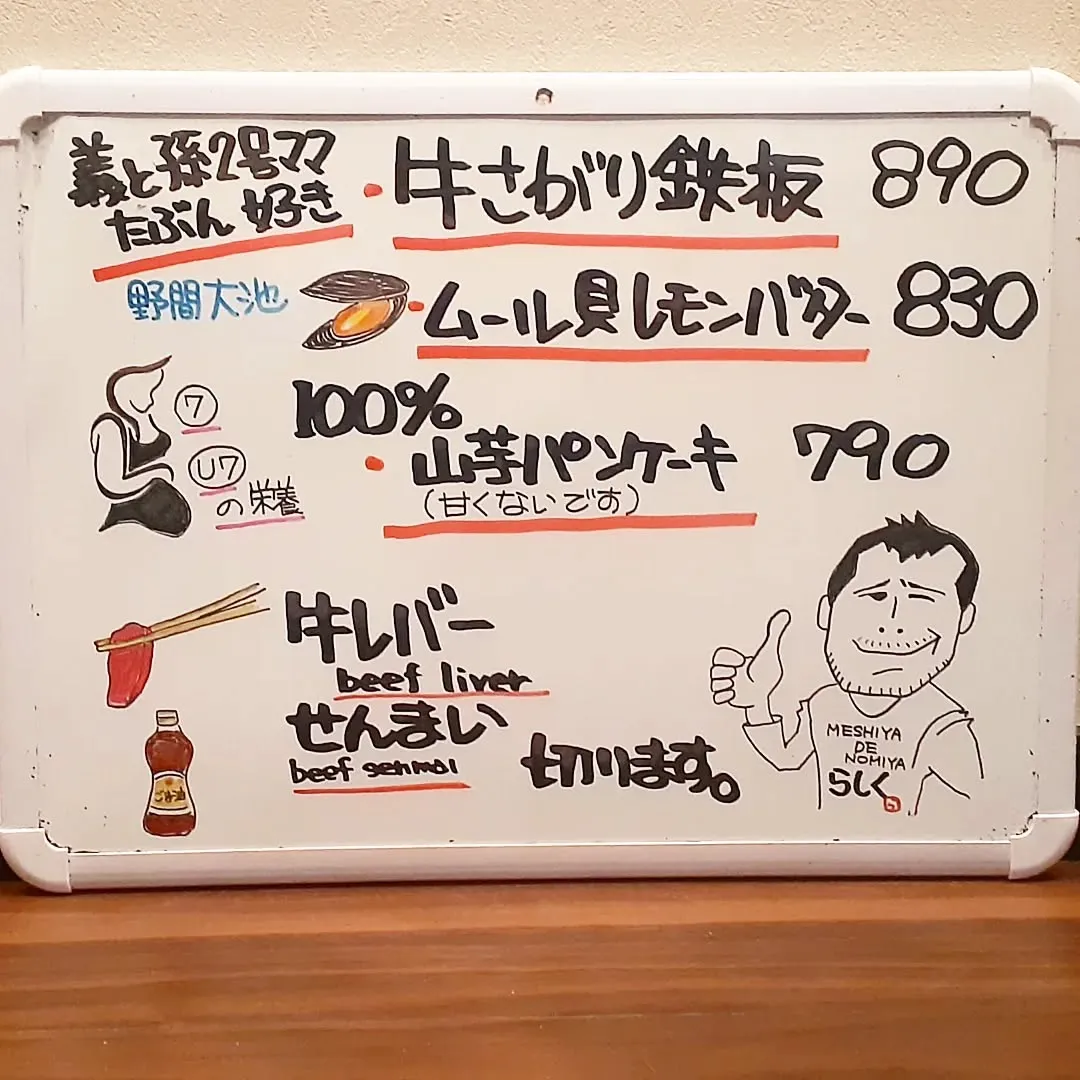 義と孫2号ママ
たぶん 好き
・牛さがり鉄板 890
野間大池
・ムール貝レモンバター 830
7
U7
の栄養
100%
・山芋パンケーキ 790
(甘くないです)
牛レバー
beef liver
せんまい
beef senmai
切ります。
ごま油
MESHIYA
DE
NOMIYA
らしく